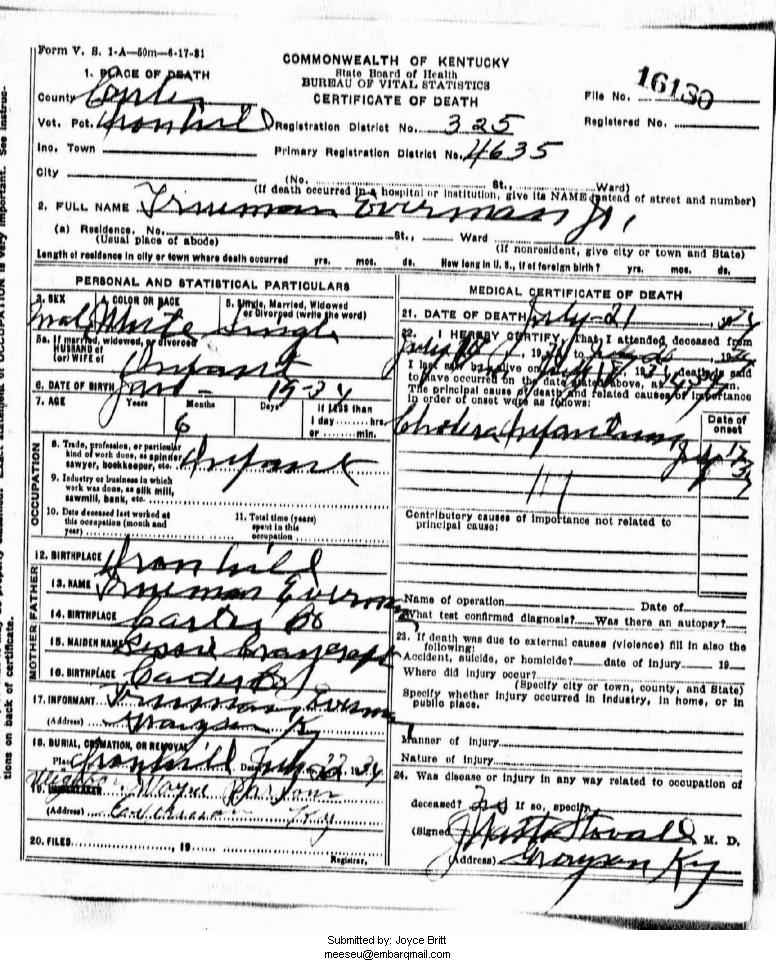 Form V. S. 1-A—50m—6-17-31
COMMONWEALTH OF KENTUCKY
State Board of Health
BUREAU OF VITAL STATISTICS
CERTIFICATE OF DEATH
File No. 16130
Registered No.
1. PLACE OF DEATH
County Carter
Vot. Pct. Ironhill
Registration District No. 325
Inc. Town
Primary Registration District No. 4635
City
(No. St., Ward)
(If death occurred in a hospital or institution, give its NAME instead of street and number)
2. FULL NAME Trueman Everman Jr.
(a) Residence. No. St., Ward
(Usual place of abode) (If nonresident, give city or town and State)
Length of residence in city or town where death occurred yrs. mos. ds. How long in U. S., if of foreign birth? yrs. mos. ds.
PERSONAL AND STATISTICAL PARTICULARS
3. SEX 4. COLOR OR RACE 5. Single, Married, Widowed or Divorced (write the word)
Male White Single
5a. If married, widowed, or divorced
HUSBAND of
(or) WIFE of Infant
6. DATE OF BIRTH Jan 1934
7. AGE Years Months Days If LESS than
6 1 day hrs.
or min.
OCCUPATION
8. Trade, profession, or particular
kind of work done, as spinner,
sawyer, bookkeeper, etc. Infant
9. Industry or business in which
work was done, as silk mill,
sawmill, bank, etc.
10. Date deceased last worked at
this occupation (month and
year)
11. Total time (years)
spent in this
occupation
12. BIRTHPLACE Ironhill
FATHER
13. NAME Trueman Everman
14. BIRTHPLACE Carter Co
MOTHER
15. MAIDEN NAME Craycraft
16. BIRTHPLACE Carter Co
17. INFORMANT Trueman Everman
(Address) Grayson Ky
18. BURIAL, CREMATION, OR REMOVAL
Place Ironhill Date July 22 1934
Neighbor Wayne
19. UNDERTAKER
(Address) Ky
20. FILED 19
Registrar.
MEDICAL CERTIFICATE OF DEATH
21. DATE OF DEATH July 21, 1934
22. I HEREBY CERTIFY, That I attended deceased from
July 19 to July
I last saw h alive on death is said
to have occurred on the date stated above, at m.
The principal cause of death and related causes of importance
in order of onset were as follows:
Date of
onset
Cholera Infantum July 17
Contributory causes of importance not related to
principal cause:
Name of operation Date of
What test confirmed diagnosis? Was there an autopsy?
23. If death was due to external causes (violence) fill in also the
following:
Accident, suicide, or homicide? date of injury 19
Where did injury occur?
(Specify city or town, county, and State)
Specify whether injury occurred in industry, in home, or in
public place.
Manner of injury
Nature of injury
24. Was disease or injury in any way related to occupation of
deceased? If so, specify
(Signed) Stovall M. D.
(Address) Grayson Ky
tions on back of certificate.
Submitted by: Joyce Britt
meeseu@embarqmail.com